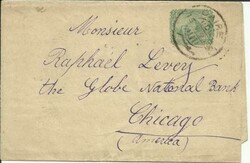 Monsieur
Raphaël Levey
the Globe National Bank
Chicago
(America)